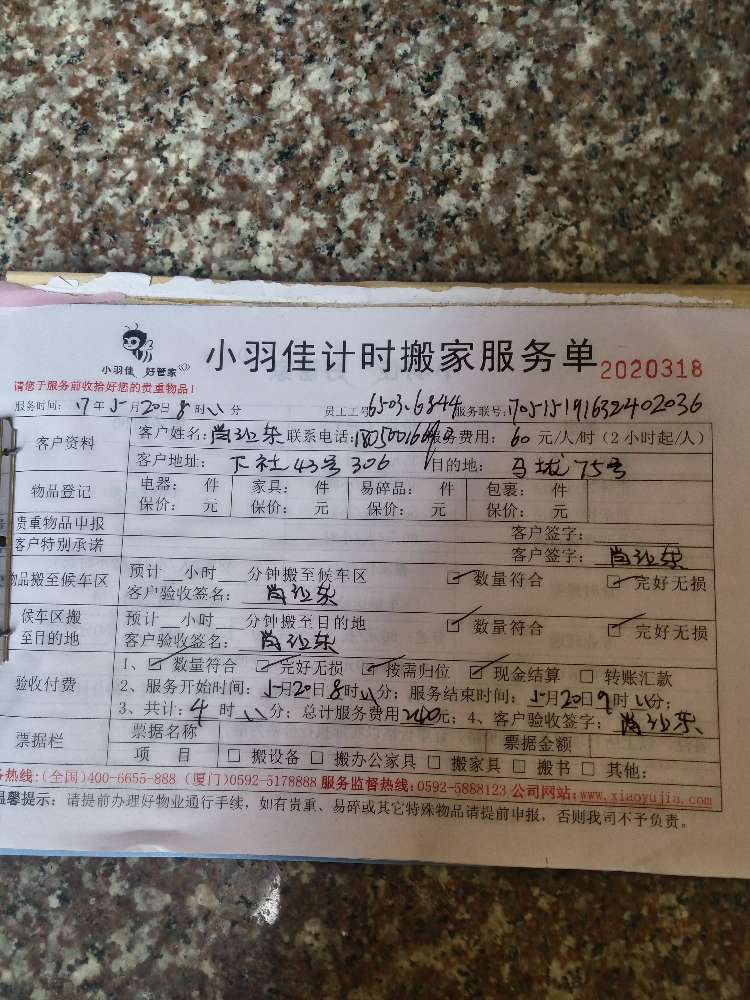 小羽佳 好管家
小羽佳计时搬家服务单 2020318
请您于服务前收拾好您的贵重物品！
服务时间：17年5月20日8时 分 员工工号6503.6844 服务联号：170515191632402036
客户资料 客户姓名： 联系电话： 服务费用：60元/人/时（2小时起/人）
客户地址：下社43号306 目的地：马垅75号
物品登记 电器： 件 家具： 件 易碎品： 件 包裹： 件
保价： 元 保价： 元 保价： 元 保价： 元
贵重物品申报 客户签字：
客户特别承诺 客户签字：
物品搬至候车区 预计__小时__分钟搬至候车区 ☑数量符合 ☑完好无损
客户验收签名：
候车区搬至目的地 预计__小时__分钟搬至目的地 ☑数量符合 ☑完好无损
客户验收签名：
验收付费 1、☑数量符合 ☑完好无损 ☑按需归位 ☑现金结算 □转账汇款
2、服务开始时间：5月20日8时 分；服务结束时间：5月20日9时 分；
3、共计：4时 分；总计服务费用240元；4、客户验收签字：
票据栏 票据名称 票据金额
项 目 □搬设备 □搬办公家具 □搬家具 □搬书 □其他：
务热线：(全国)400-6655-888 (厦门)0592-5178888 服务监督热线：0592-5888123 公司网站：www.xiaoyujia.com
温馨提示：请提前办理好物业通行手续，如有贵重、易碎或其它特殊物品请提前申报，否则我司不予负责。